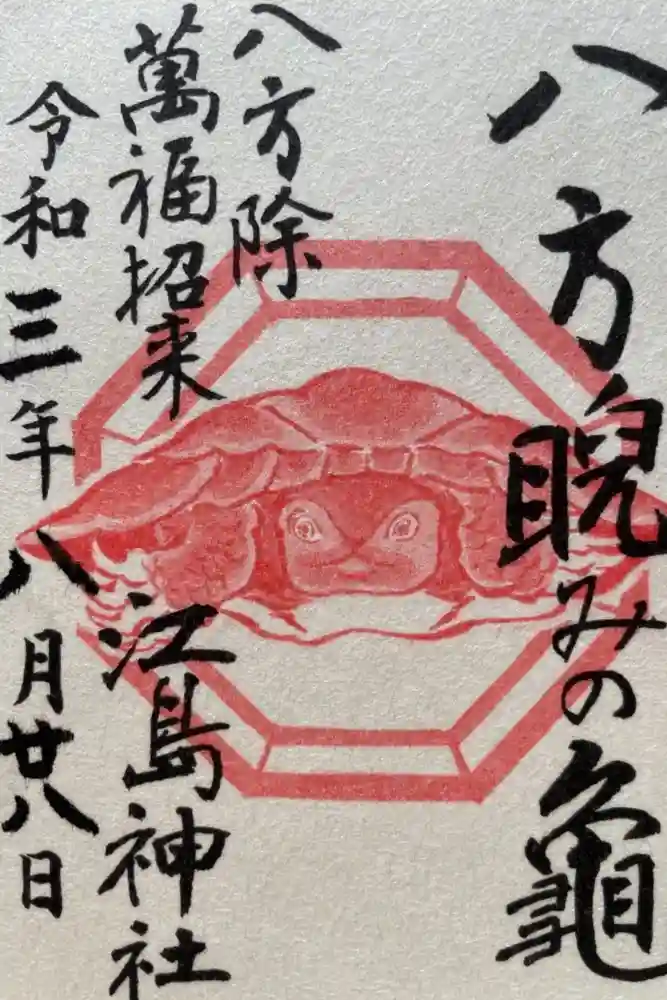 八方睨みの龜
八方除
萬福招来
江島神社
令和三年八月廿八日